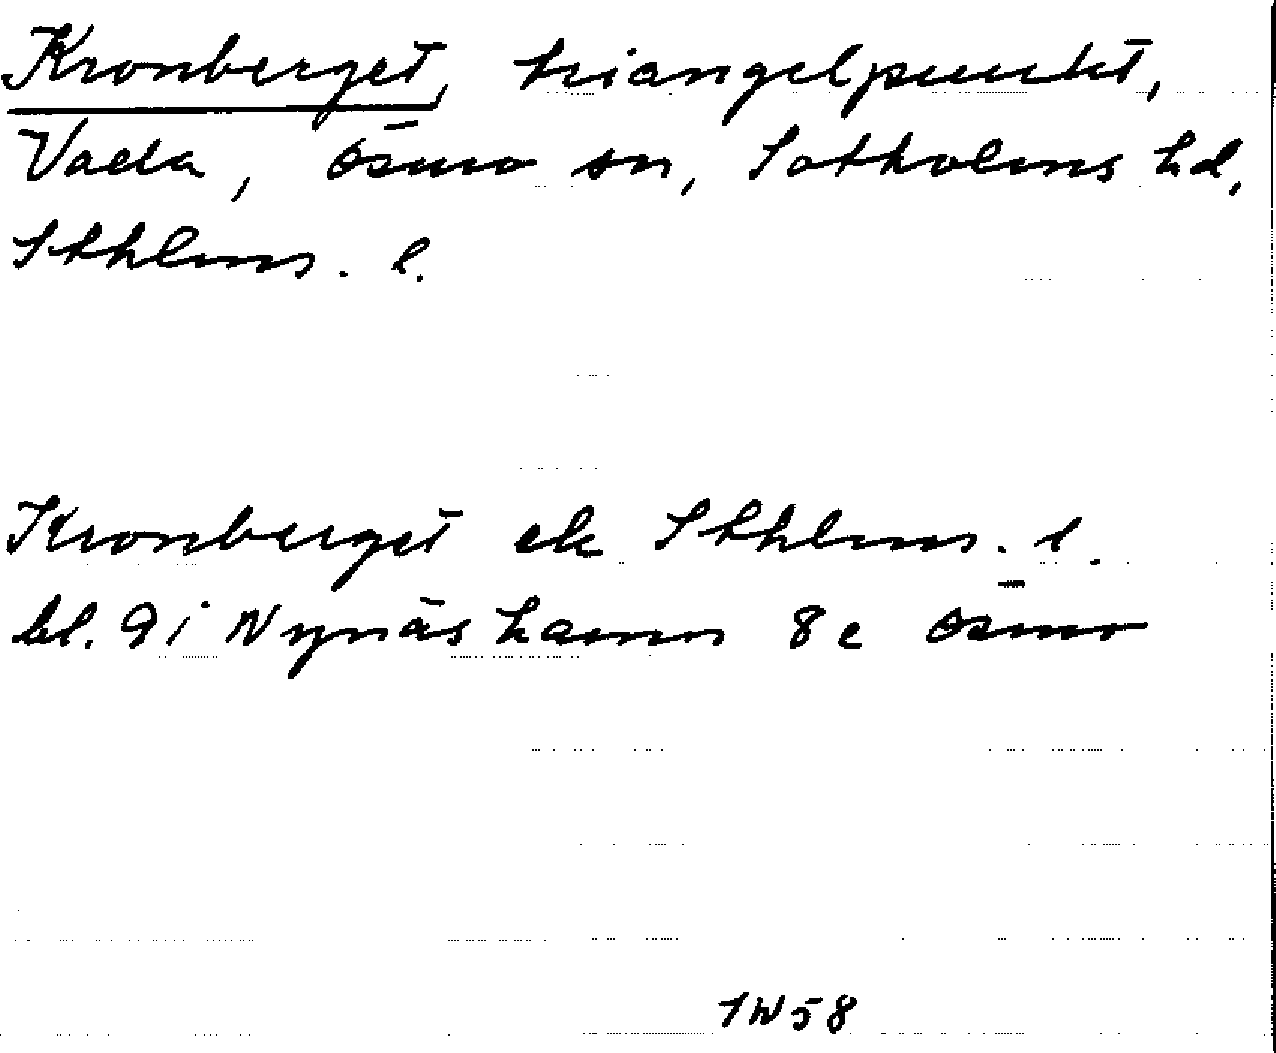 Kronberget, triangelpunkt,
Vada, Ösmo sn, Sotholms hd,
Sthlms. l.
Kronberget ek Sthlms. l.
bl. 9i Nynäshamn 8c Ösmo
SW58